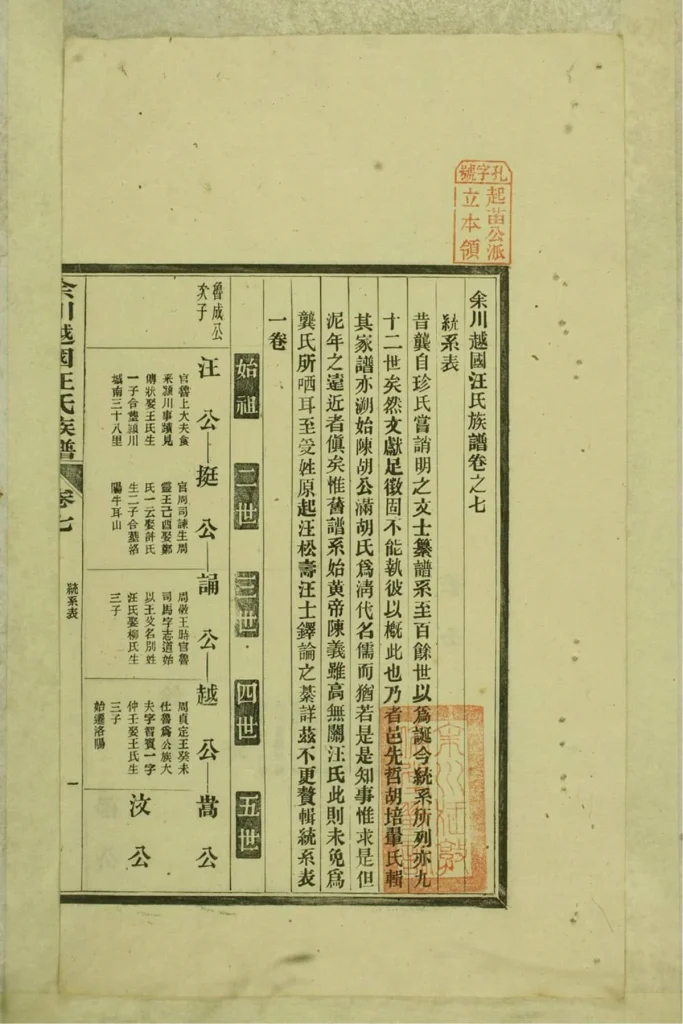 孔字號
起苗公派
立本領
余川越國汪氏族譜卷之七
統系表
昔龔自珍氏嘗誚明之文士纂譜系至百餘世以爲誕今統系所列亦九
十二世矣然文獻足徵固不能執彼以概此也乃者邑先哲胡培翬氏輯
其家譜亦溯始陳胡公滿胡氏爲清代名儒而猶若是是知事惟求是但
泥年之遠近者傎矣惟舊譜系始黃帝陳義雖高無關汪氏此則未免爲
龔氏所哂耳至受姓原起汪松壽汪士鐸論之綦詳茲不更贅輯統系表
一卷
始祖
二世
三世
四世
五世
魯成公
次子
汪公
挺公
誦公
越公
蒿公
汶公
官魯上大夫食
采潁川事蹟見
傳狀娶王氏生
一子合塟潁川
城南三十八里
官周司諫生周
靈王己酉娶鄭
氏一云娶許氏
生二子合墓洛
陽牛耳山
周敬王時官魯
司馬字志道始
以王父名別姓
汪氏娶柳氏生
三子
周貞定王癸未
仕魯爲公族大
夫字智賓一字
仲壬娶王氏生
三子
始遷洛陽
余川越國汪氏族譜
卷七
統系表
一